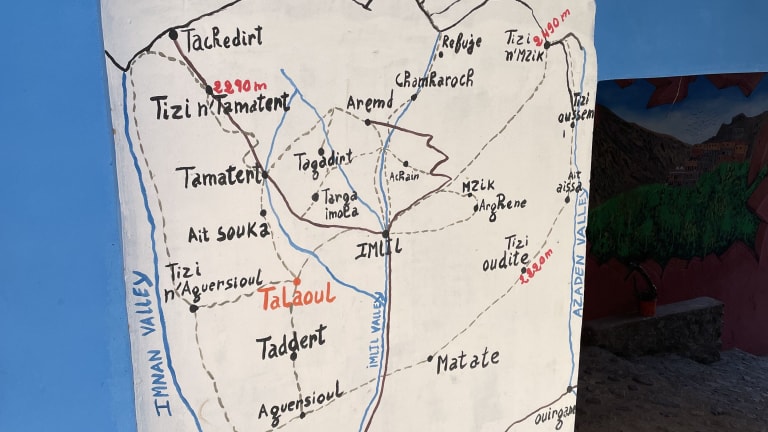 Tizi
n'Mzik
2490 m
Refuje
Tacredirt
2290 m
Chamraroch
Tizi n'Tamatert
Aremd
Tizi
oussem
Tagadirt
AcRain
Tamatert
Mzik
Ait
aissa
Targa
imola
ArgRene
Ait souka
IMLIL
Tizi
oudite
2220m
AZADEN VALLEY
Tizi
n'Aguersioul
Talaoul
IMNAN VALLEY
iMLIL VALLEY
Taddert
Matate
Aguersioul
ouirgane